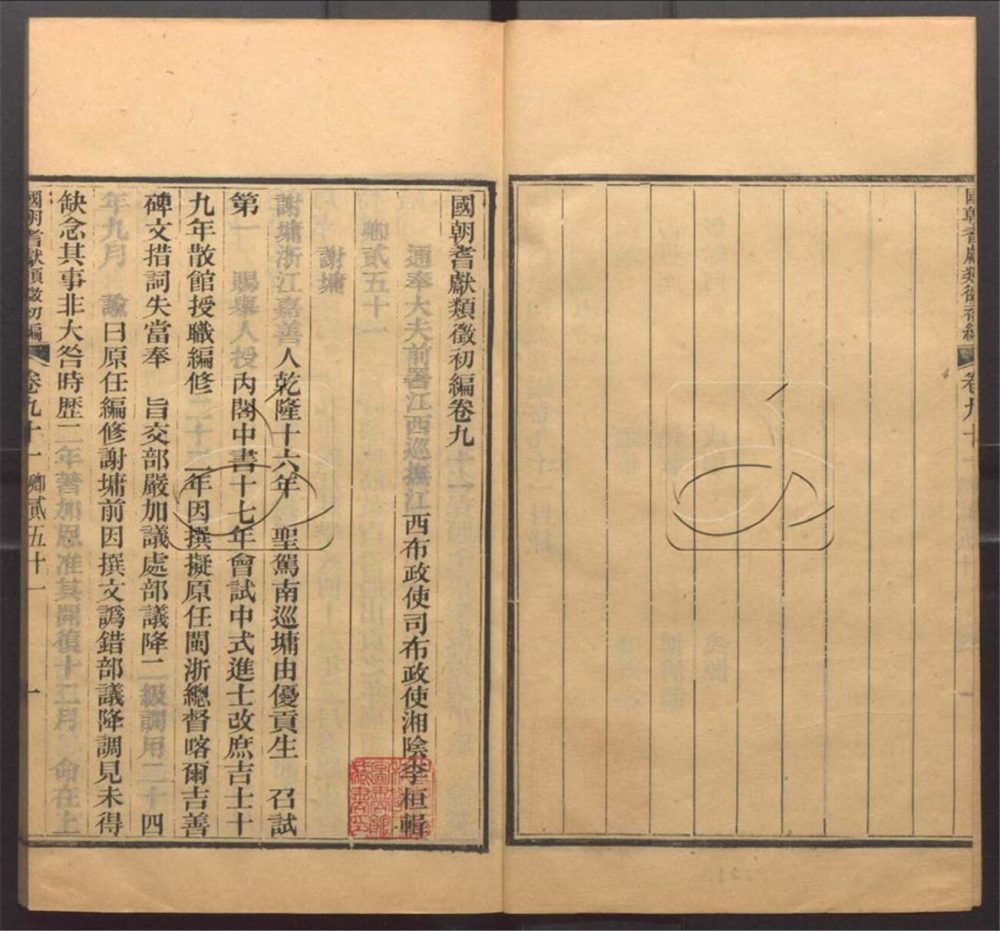 國朝耆獻類徵初編卷九十一
通奉大夫前署江西巡撫江西布政使司布政使湘陰李桓輯
卿貳五十一
謝墉
謝墉浙江嘉善人乾隆十六年 聖駕南巡墉由優貢生 召試
第一 賜舉人授內閣中書十七年會試中式進士改庶吉士十
九年散館授職編修二十二年因撰擬原任閩浙總督喀爾吉善
碑文措詞失當奉 旨交部嚴加議處部議降二級調用二十四
年九月 諭曰原任編修謝墉前因撰文譌錯部議降調見未得
缺念其事非大咎時歷二年著加恩准其開復十二月 命在上
國朝耆獻類徵初編 卷九十一 卿貳五十一 一